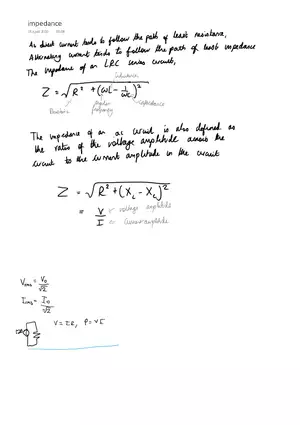 impedance
As direct current tends to follow the path of least resistance,
Alternating current tends to follow the path of least impedance
The impedance of an LRC series circuit,
inductance
Z = √R² + (ωL - 1/ωC)²
Resistance angular frequency capacitance
The impedance of an ac circuit is also defined as
the ratio of the voltage amplitude across the
circuit to the current amplitude in the circuit
Z = √R² + (X_L - X_C)²
= V/I
voltage amplitude
current amplitude
V_rms = V₀/√2
I_rms = I₀/√2
V = IR, P = VI